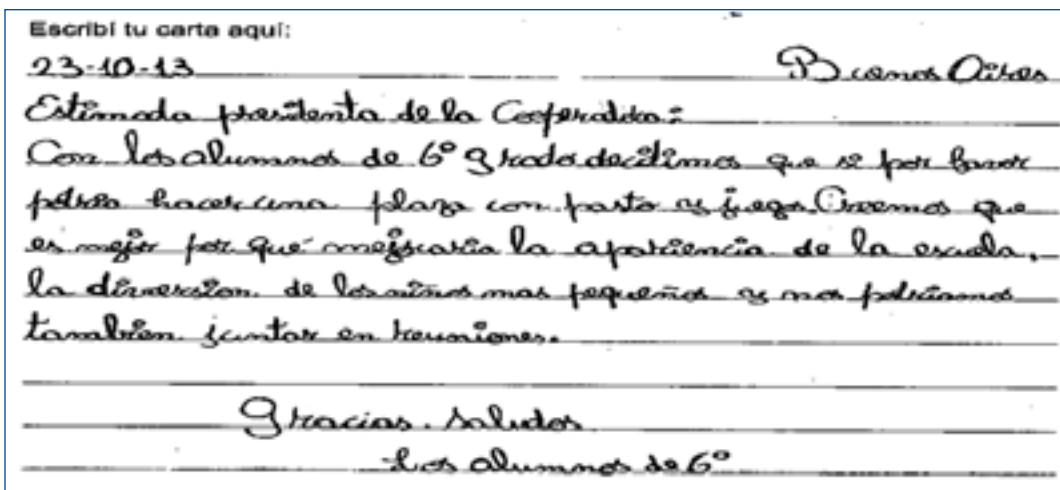 Escribí tu carta aquí:
23-10-13 Buenos Aires
Estimada presidenta de la Cooperadora:
Con los alumnos de 6° grado decidimos que si por favor
podria hacer una plaza con pasto y juegos. Creemos que
es mejor por que mejoraria la apariencia de la escuela,
la diversion de los niños mas pequeños y nos podriamos
tambien juntar en reuniones.
Gracias. Saludos
Los alumnos de 6°